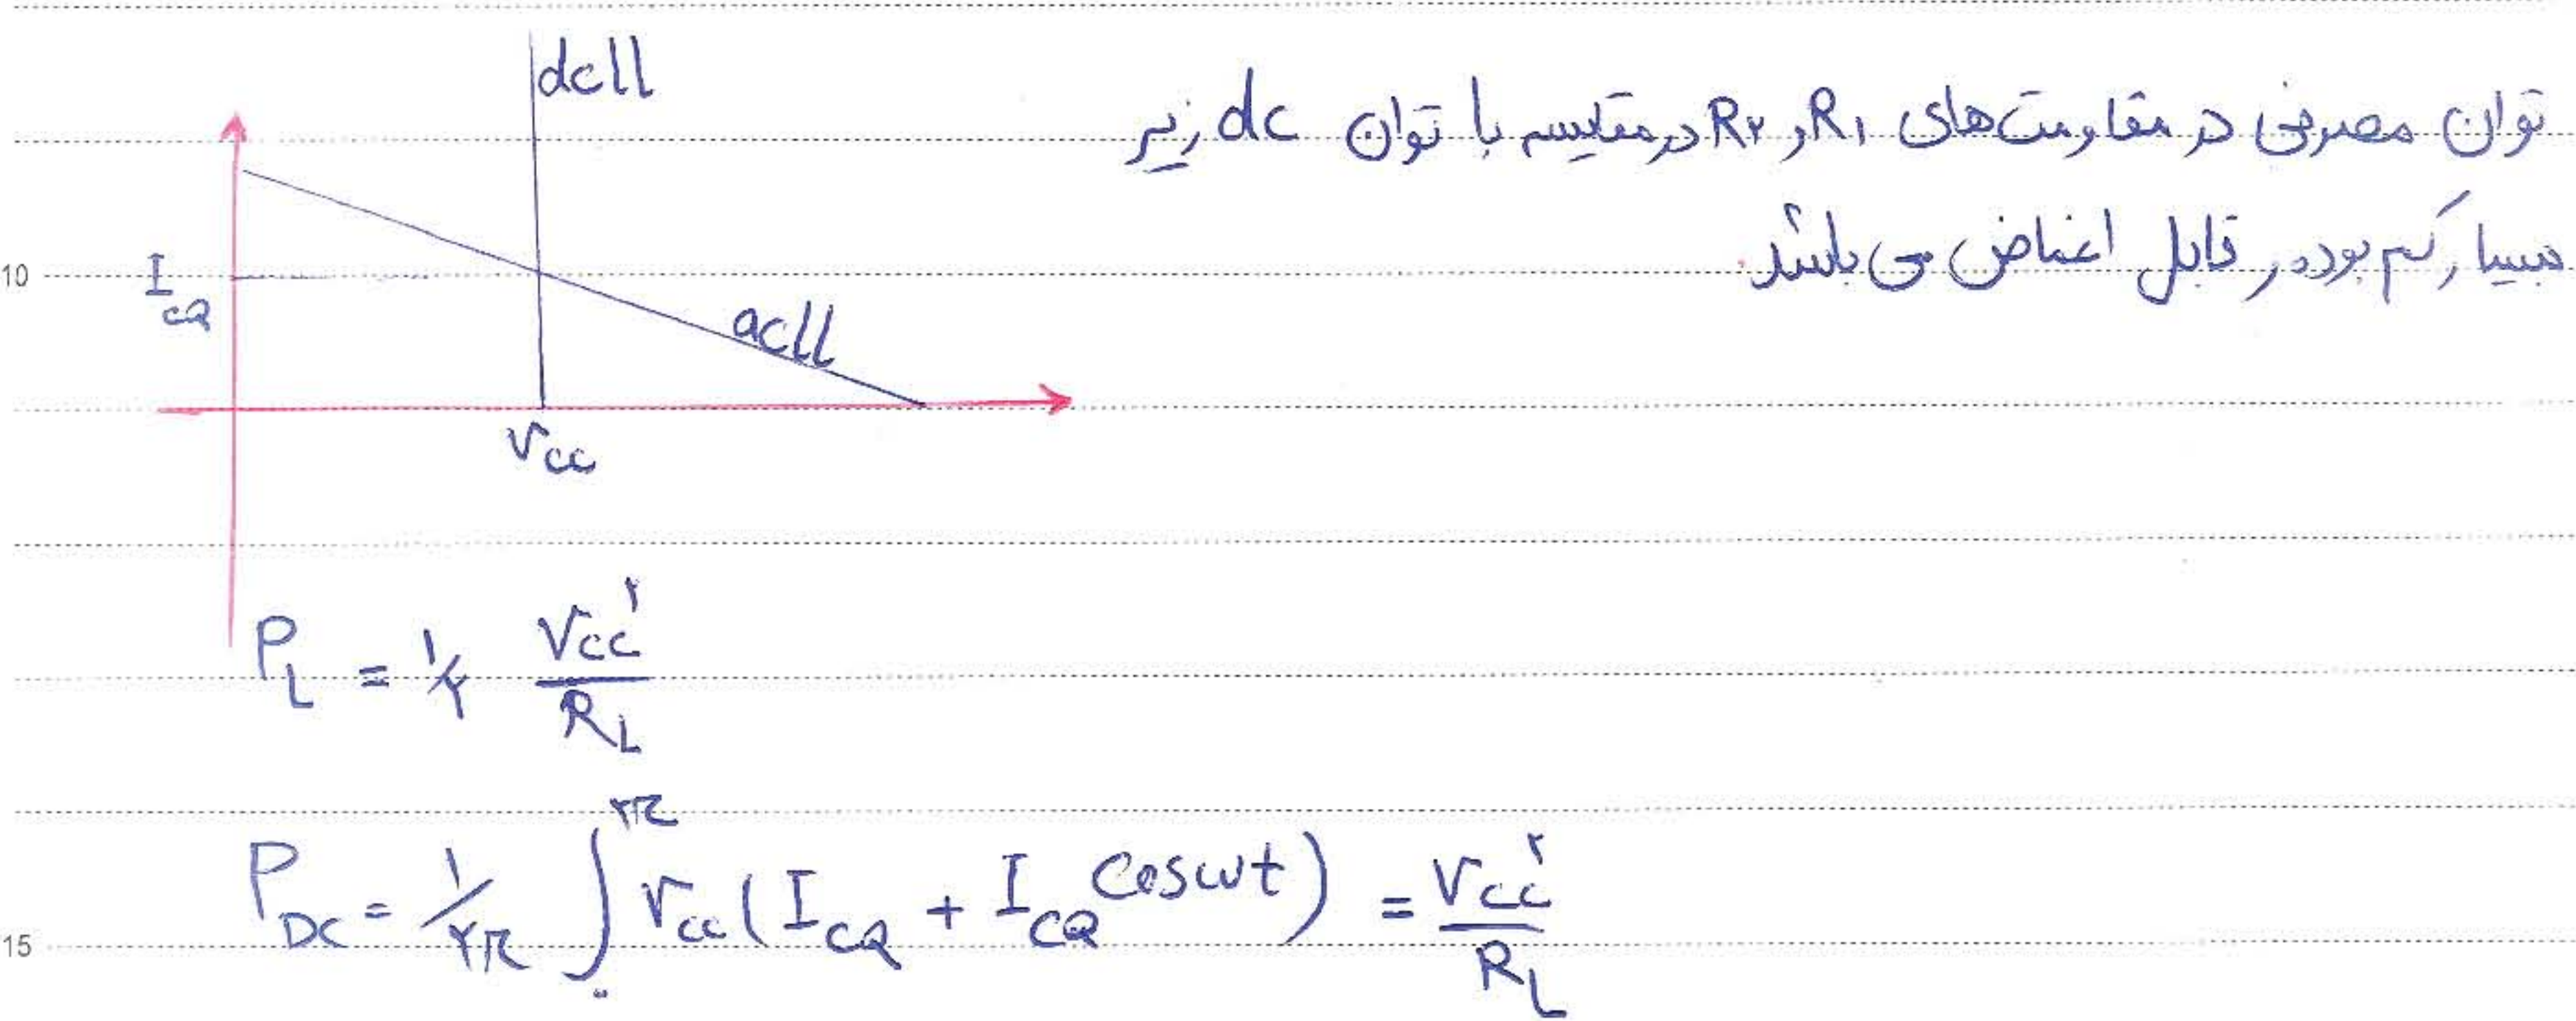 dcll
توان مصرفی در مقاومت‌های R۱ و R۲ در مقایسه با توان dc زیر
بسیار کم بوده و قابل اغماض می باشد.
10
I_CQ
acll
V_CC
P_L = ۱/۲ V_CC^۲ / R_L
P_DC = ۱/۲π ∫_۰^۲π V_CC (I_CQ + I_CQ cos ωt) = V_CC^۲ / R_L
15